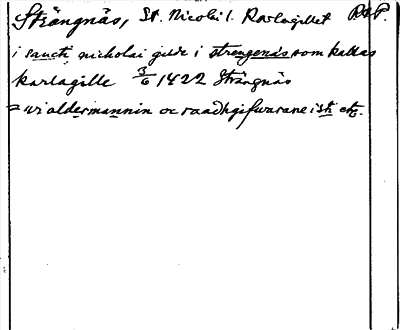 Strängnäs, St. Nicolai l. Karlagillet RAP.
i sancti nicholai gilde i strengenäs som kallas
karlagille 3/6 1422 Strängnäs
= wi aldermannin oc raadhgifwarane i sti etc.